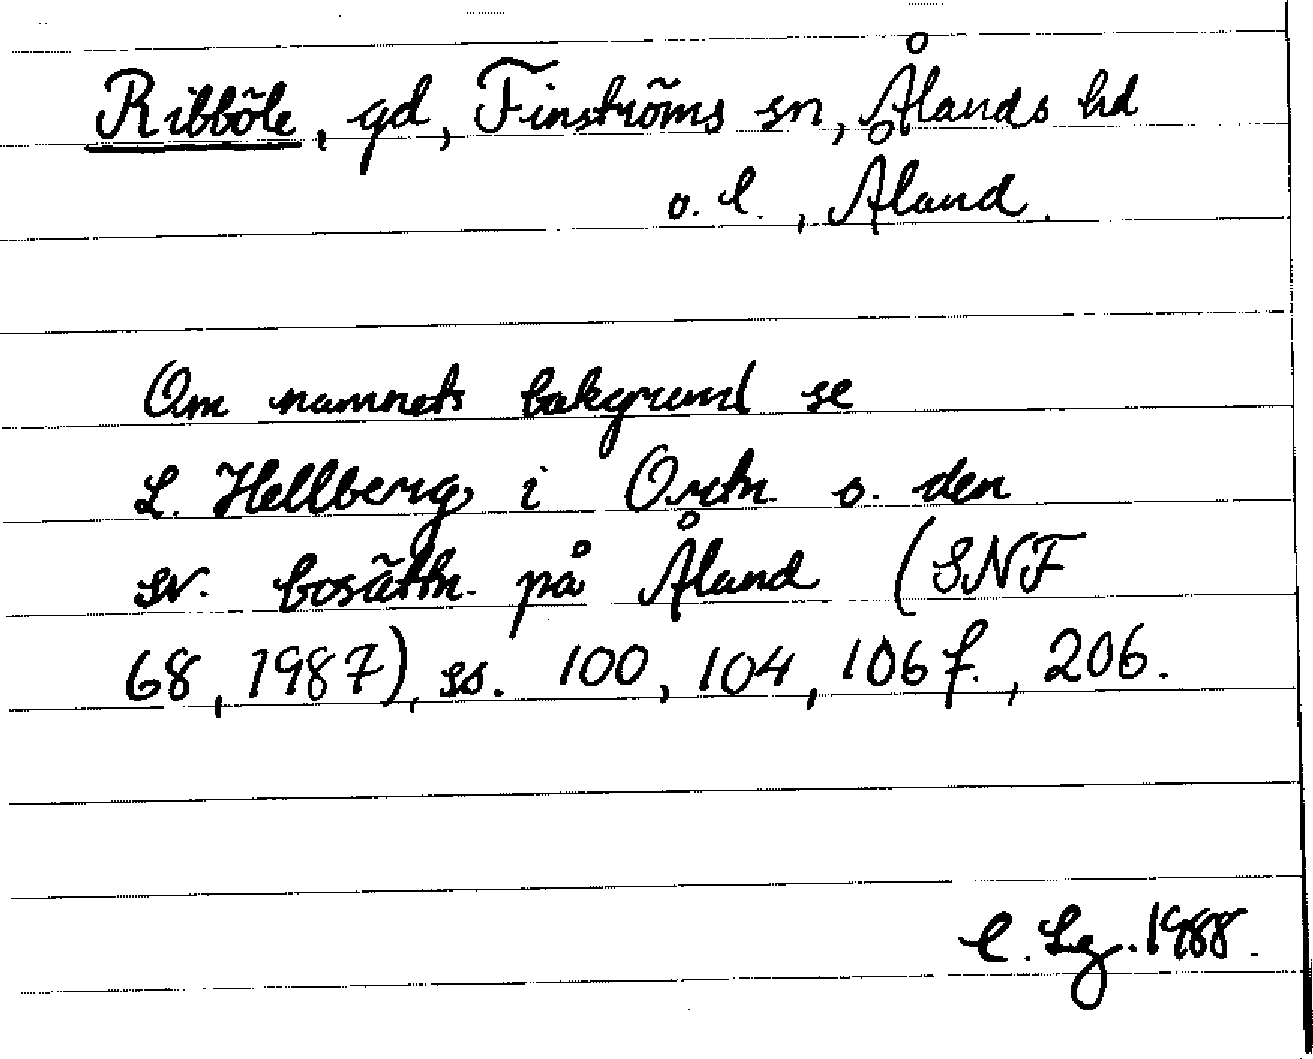 Ribböle, gd, Finströms sn, Ålands hd
o. l., Åland.
Om namnets bakgrund se
L. Hellberg i Ortn. o. den
sv. bosättn. på Åland (SNF
68, 1987), ss. 100, 104, 106 f., 206.
C. Lg. 1988.